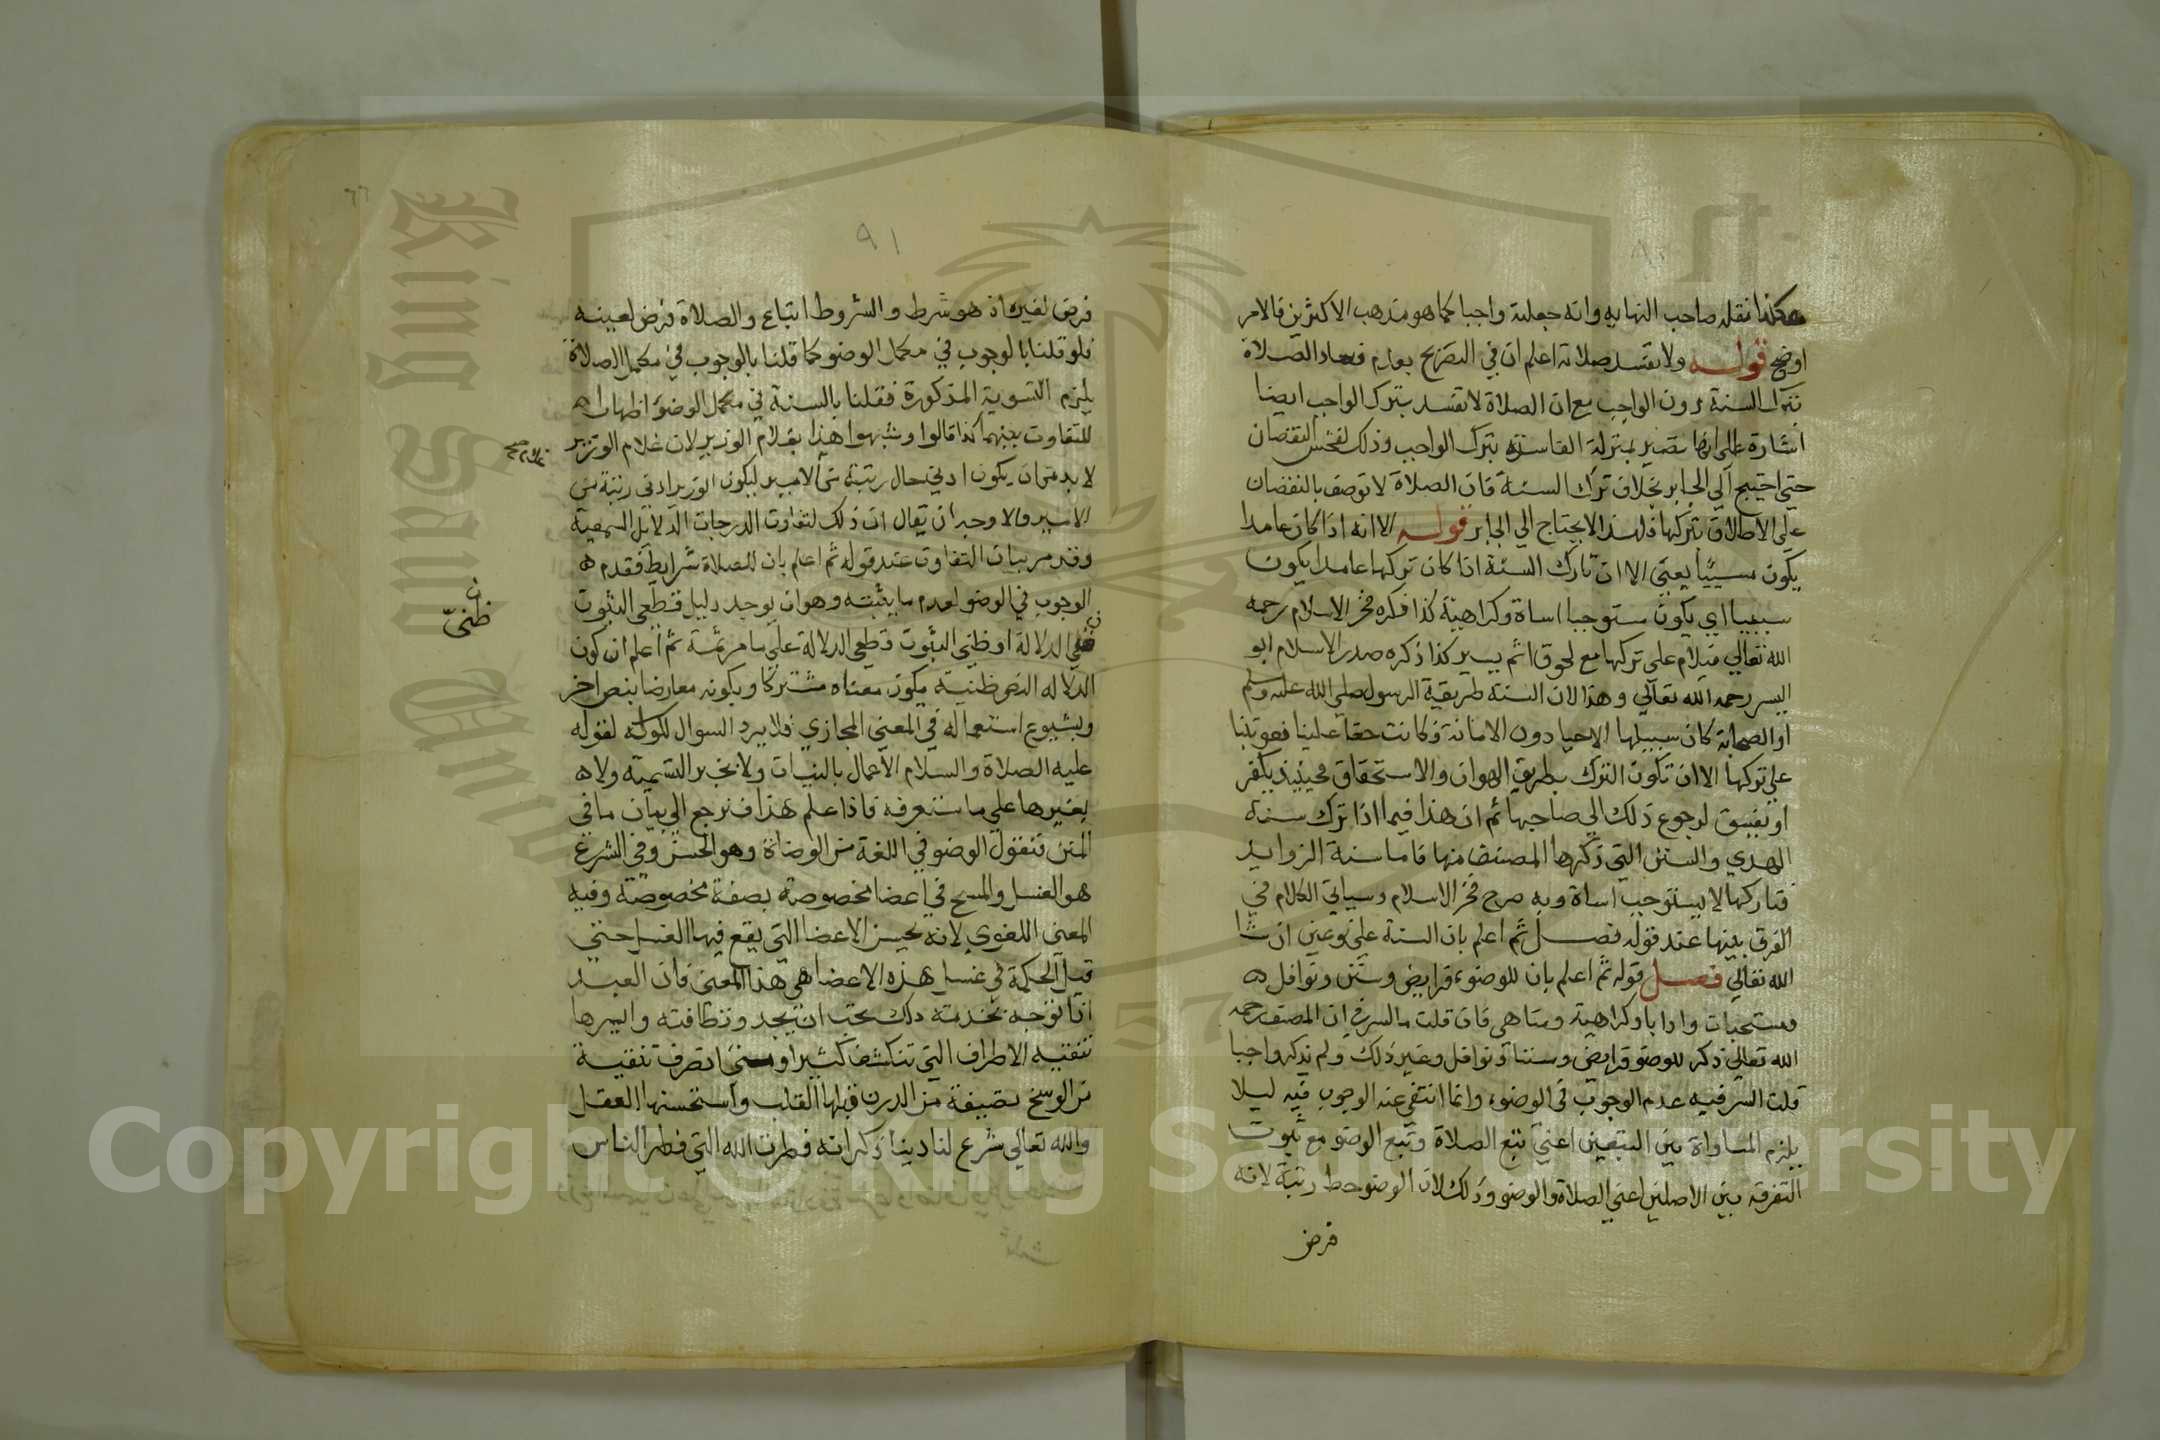 هكذا نقله صاحب النهايه وانه جعلته واجبا كما هو مذهب الاكثرين فالامر
اوضح قوله ولا تفسد صلاته اعلم ان في التصريح بعدم فساد الصلاة
بترك السنة دون الواجب مع ان الصلاة لا تفسد بترك الواجب ايضا
اشارة على انها تصير بمنزلة الفاسدة بترك الواجب وذلك لفحش النقصان
حتى احتيج الى الجابر بخلاف ترك السنة فان الصلاة لا توصف بالنقصان
على الاطلاق بتركها فلهذا لا يحتاج الى الجابر قوله الا انه اذا كان عامدا
يكون مسيئا يعني الا ان تارك السنة اذا كان تركها عامدا يكون
مسييا اي يكون مستوجبا اساة وكراهية كذا ذكره فخر الاسلام رحمه
الله تعالى فيلام على تركها مع لحوق اثم يسير كذا ذكره صدر الاسلام ابو
اليسر رحمه الله تعالى وهذا لان السنة طريقة الرسول صلى الله عليه وسلم
او الصحابة كان سبيلها الاحيا دون الاماتة فكانت حقا علينا فعوتبنا
على تركها الا ان تكون الترك بطريق الهوان والاستحقاق فحينيذ يكفر
او يفسق لرجوع ذلك الى صاحبها ثم ان هذا فيما اذا ترك سنة
الهدي والسنن التي ذكرها المصنف منها فاما سنة الزوايد
فتاركها لا يستوجب اساة وبه صرح فخر الاسلام وسياتي الكلام في
الفرق بينها عند قوله فصل ثم اعلم بان السنة على نوعين ان شا
الله تعالى فصل قوله ثم اعلم بان للوضوء فرايض وسنن ونوافل
ومستحبات وادابا وكراهية ومناهي فان قلت ما السر في ان المصنف رحمه
الله تعالى ذكر للوضو فرايض وسننا ونوافل وغير ذلك ولم يذكر واجبا
قلت السر فيه عدم الوجوب في الوضوء وانما انتفى عنه الوجوب فيه ليلا
يلزم المساواة بين التبعين اعني تبع الصلاة وتبع الوضو مع ثبوت
التفرقه بين الاصلين اعني الصلاة والوضو وذلك لان الوضو حط رتبة لانه
فرض
٩١
٦٦
فرض لغيره اذ هو شرط والشروط اتباع والصلاة فرض لعينه
فلو قلنا بالوجوب في مكمل الوضو كما قلنا بالوجوب في مكمل الصلاة
يلزم التسوية المذكورة فقلنا بالسنة في مكمل الوضو اظهارا
للتفاوت بينهما كذا قالوا وشبهوا هذا بغلام الوزير لان غلام الوزير
لا بد من ان يكون ادنى حال رتبة من الامير ليكون الوزير ادنى رتبة من
الامير والاوجه ان يقال ان ذلك لتفاوت الدرجات الدلايل السمعية
وقد مر بيان التفاوت عند قوله ثم اعلم بان للصلاة شرايط فقدم
الوجوب في الوضو لعدم ما يثبته وهو ان يوجد دليل قطعي الثبوت
ظني الدلالة او ظني الثبوت قطعي الدلالة على ما مر ثمة ثم اعلم ان كون
ن
ظني
الدلاله النص ظنية يكون معناه مشتركا وبكونه معارضا بنص اخر
وبشيوع استعماله في المعنى المجازي فلا يرد السوال لكونه لقوله
عليه الصلاة والسلام الاعمال بالنيات ولا بخبر التسمية ولا
بغيرها على ما ستعرفه فاذا علم هذا فنرجع الى بيان ما في
المتن فنقول الوضو في اللغة من الوضاة وهو الحسن وفي الشرع
هو الغسل والمسح في اعضا مخصوصة بصفة مخصوصة وفيه
المعنى اللغوي لانه يحسن الاعضا التي يقع فيها الغسل حتى
قيل الحكمة في غسل هذه الاعضا هي هذا المعنى فان العبد
اذا توجه بخدمته ملك يجب ان تجدد نظافته وايسرها
تنقية الاطراف التي تنكشف كثيرا ومتى تنقية
من الوسخ نضيفة من الدرن قبلها القلب واستحسنها العقل
والله تعالى شرع لنا دينا ذكر انه فطرت الله التي فطر الناس
King Saud University
Copyright © King Saud University
1957